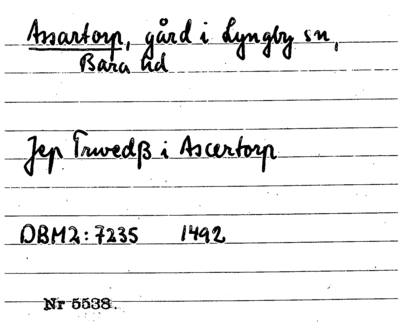 Assartorp, gård i Lyngby sn,
Bara hd
Jep Trwedß i Ascertorp
DBM2:7235 1492
Nr 5538.